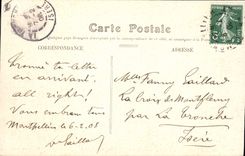 Carte Postale
CORRESPONDANCE
ADRESSE
Trouvé ta lettre
en arrivant.
all right!
Vous embrasse tous
Montpellier le 6-2.08
Mlle Fanny Gaillard
La Croix de Montfleury
par La Tronche
Isère